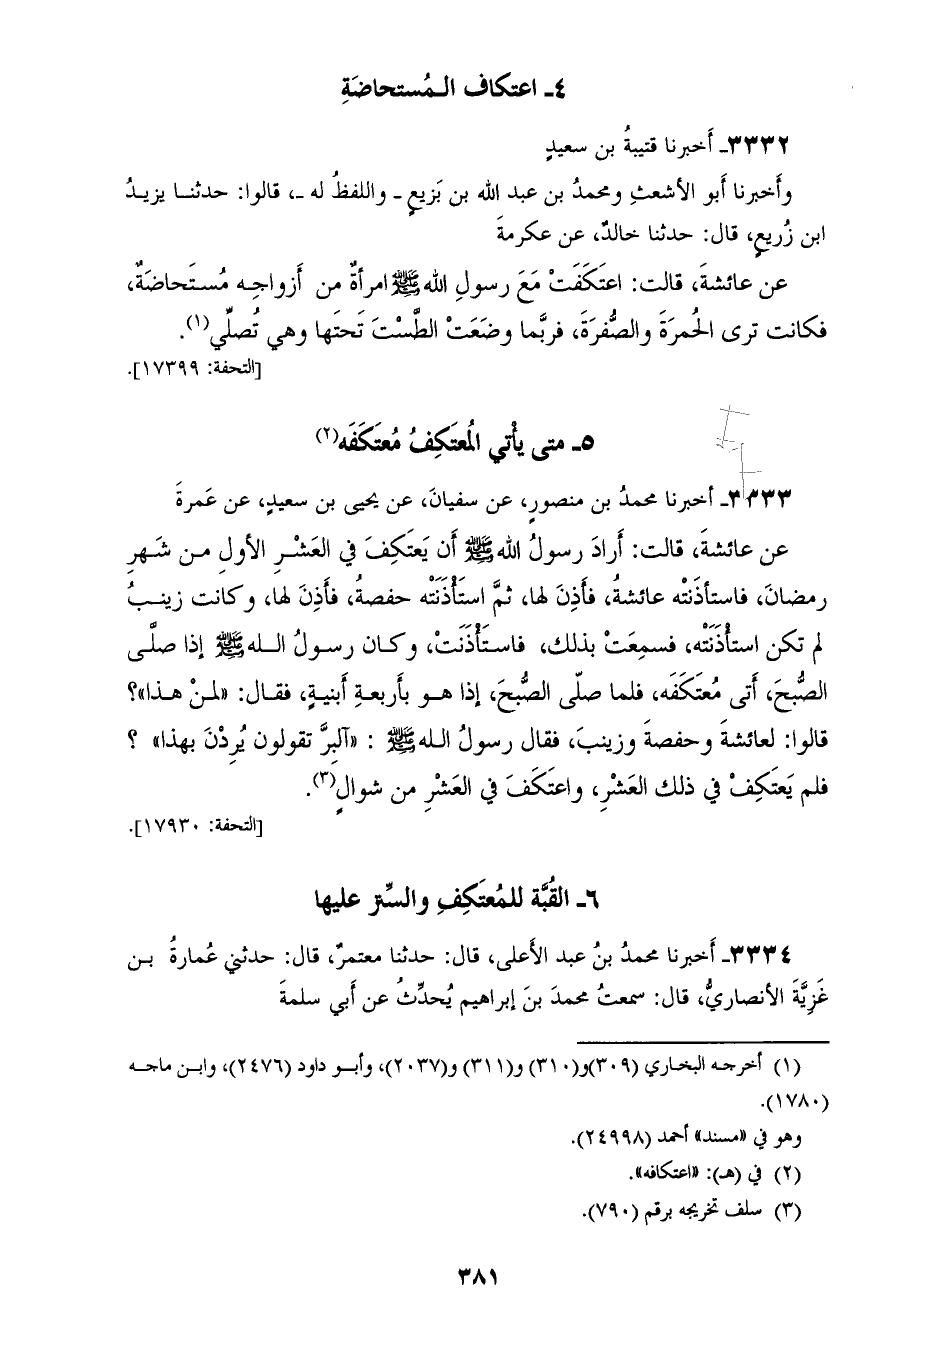 ٤ـ اعتكاف الـمُستحاضَةِ
٣٣٣٢ـ أَخبرنا قتيبةُ بن سعيدٍ
وأَخبرنا أَبو الأشعثِ ومحمدُ بن عبد الله بن بَزيعٍ ـ واللفظُ له ـ، قالوا: حدثنـا يزيـدُ
ابن زُريعٍ، قال: حدثنا خالدٌ، عن عكرمةَ
عن عائشةَ، قالت: اعتَكَفَتْ مَعَ رسولِ الله ﷺ امرأةٌ من أَزواجِـه مُستَحاضَةٌ،
فكانت ترى الحُمرَةَ والصُّفرَةَ، فربَّما وضَعَتْ الطَّسْتَ تَحتَها وهي تُصلِّي(١).
[التحفة: ١٧٣٩٩].
٥ـ متى يأْتي المُعتَكِفُ مُعتَكَفَه(٢)
٣٣٣٣ـ أخبرنا محمدُ بن منصورٍ، عن سفيانَ، عن يحيى بن سعيدٍ، عن عَمرةَ
عن عائشةَ، قالت: أَرادَ رسولُ الله ﷺ أن يَعتَكِفَ في العَشْـرِ الأولِ مـن شَـهرِ
رمضانَ، فاستأذَنَتْه عائشةُ، فأَذِنَ لها، ثمَّ استَأْذَنَتْه حفصةُ، فأَذِنَ لها، وكانت زينـبُ
لم تكن استأْذَنَتْه، فسمِعَتْ بذلك، فاستَأْذَنَتْ، وكـان رسـولُ اللـه ﷺ إذا صلَّـى
الصُّبحَ، أَتى مُعتَكَفَه، فلما صلّى الصُّبحَ، إذا هـو بأَربعـةِ أَبنيـةٍ، فقـال: «لمنْ هـذا»؟
قالوا: لعائشةَ وحفصةَ وزينبَ، فقال رسولُ اللـه ﷺ : «آلبِرَّ تقولون يُرِدْنَ بهذا» ؟
فلم يَعتَكِفْ في ذلك العَشْرِ، واعتَكَفَ في العَشْرِ من شوالٍ(٣).
[التحفة: ١٧٩٣٠].
٦ـ القُبَّة للمُعتَكِفِ والسِّتر عليها
٣٣٣٤ـ أَخبرنا محمدُ بنُ عبد الأَعلى، قال: حدثنا معتمرٌ، قال: حدثني عُمارةُ بـن
غَزِيَّةَ الأنصاريُّ، قال: سمعتُ محمدَ بنَ إبراهيم يُحدِّثُ عن أَبي سلمةَ
(١) أخرجـه البخـاري (٣٠٩)و(٣١٠) و(٣١١) و(٢٠٣٧)، وأبـو داود (٢٤٧٦)، وابـن ماجـه
(١٧٨٠).
وهو في «مسند» أحمد (٢٤٩٩٨).
(٢) في (هـ): «اعتكافه».
(٣) سلف تخريجه برقم (٧٩٠).
٣٨١